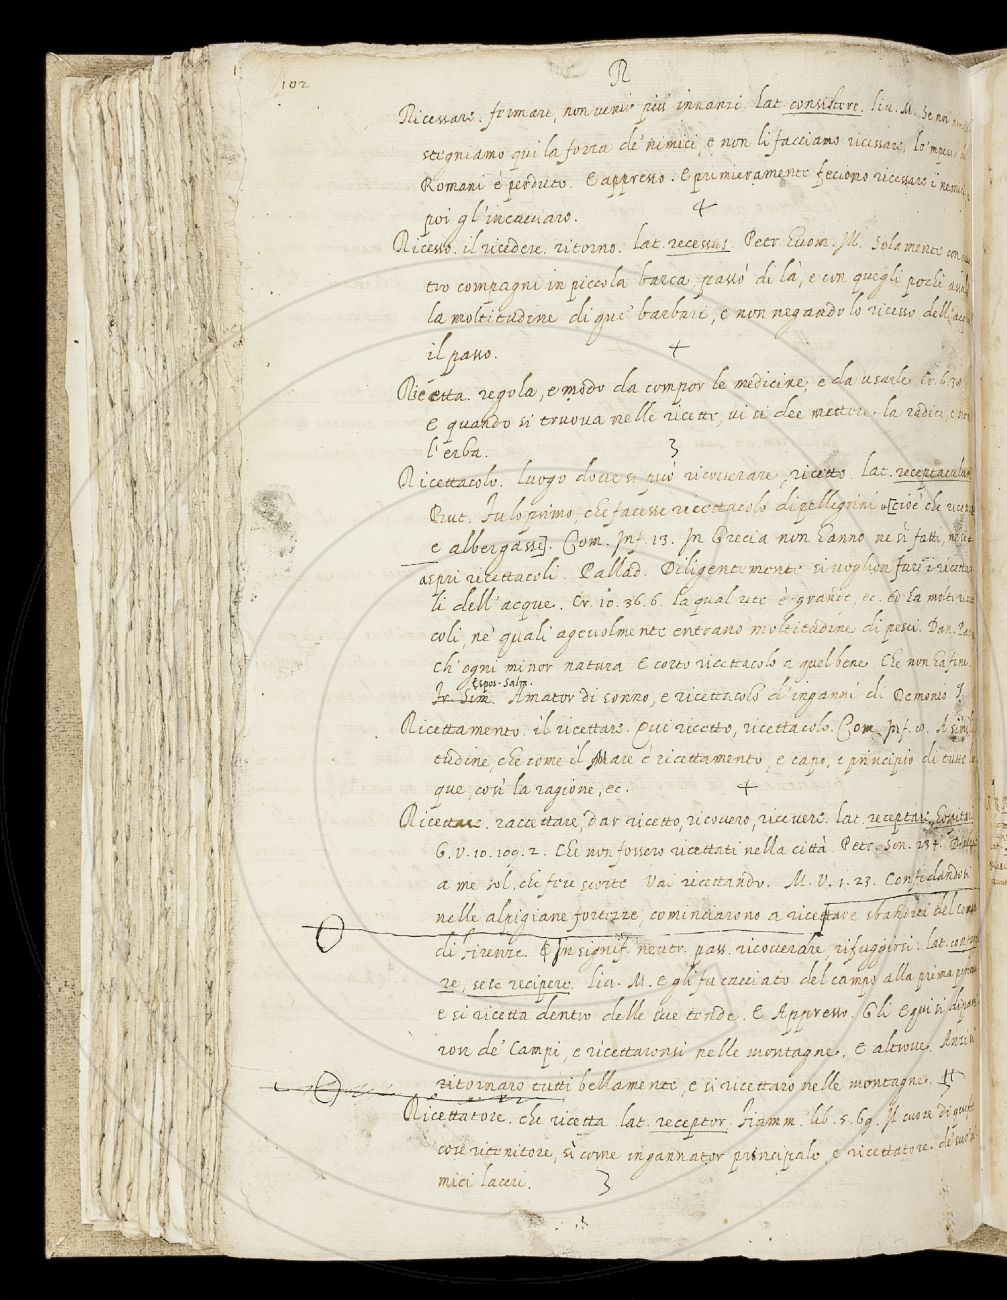 102
R
Ricessare. fermare, non venir più innanzi. lat. consistere. liv. M. Se noi non
stegniamo qui la forza de' nimici, e non li facciamo ricessare, lo 'mperio de'
Romani è perduto. E appresso. E primieramente feciono ricessare i nemici, e
poi gl'incacciaro.
Ricesso. il ricedere. ritorno. lat. recessus. Petr. Huom. Ill. Solamente con
tro compagni in piccola barca passò di là, e con quegli pochi assalì
la moltitudine di que' barbari, e non negandolo ricesso dell'acqua
il passo.
Ricetta. regola, e modo da compor le medicine, e da usarle Cr. 6.
E quando si truova nelle ricette, vi si dee mettere la radice, e non
l'erba.
Ricettacolo. luogo dove si può ricoverare, ricetto. lat. receptaculum
But. Fu lo primo, che facesse ricettacolo di pellegrini [cioè che
e albergasse]. Com. Inf. 13. In Grecia non hanno ne sì fatti, nè sì
aspri ricettacoli. Pallad. Diligentemente si voglion fare i ricettaco
li dell'acque. Cr. 10. 36. 6. la qual rete è grande, ec. ed ha molti
coli, ne' quali agevolmente entrano moltitudine di pesci. Dan. Par.
Ch'ogni minor natura E corto ricettacolo a quel bene Che non ha fine.
Espos. Salm.
Amator di sonno, e ricettacolo d'inganni di Demonio.
Ricettamento. il ricettare. qui ricetto, ricettacolo. Com. Inf. 8. A simili
tudine, che come il Mare è ricettamento, e capo, e principio di tutte
que, così la ragione, ec.
Ricettare. raccettare, dar ricetto, ricovero, ricevere. lat. receptare, hospitari
G. V. 10. 109. 2. Chi non fossero ricettati nella città. Petr. Son. 234.
a me sol, che fere scorte Vai ricettando. M. V. 1. 23. Confidandosi
nelle alpigiane fortezze, cominciarono a ricettare sbanditi del Comune
di Firenze. E In signif. neutr. pass. ricoverare, rifuggirsi. lat. confer
re, sese recipere. liv. M. E gli fu cacciato del campo alla prima
e si ricetta dentro delle sue tende. E Appresso. Gli Equi si
ron de' Campi, e ricettaronsi nelle montagne. E altrove. Anzi si
ritornaro tutti bellamente, e si ricettaro nelle montagne.
Ricettatore. che ricetta. lat. receptor. Fiamm. lib. 5. 69. Il cuore di queste
cose ritenitore, sì come ingannator principale, e ricettatore de' suoi
mici lacci.